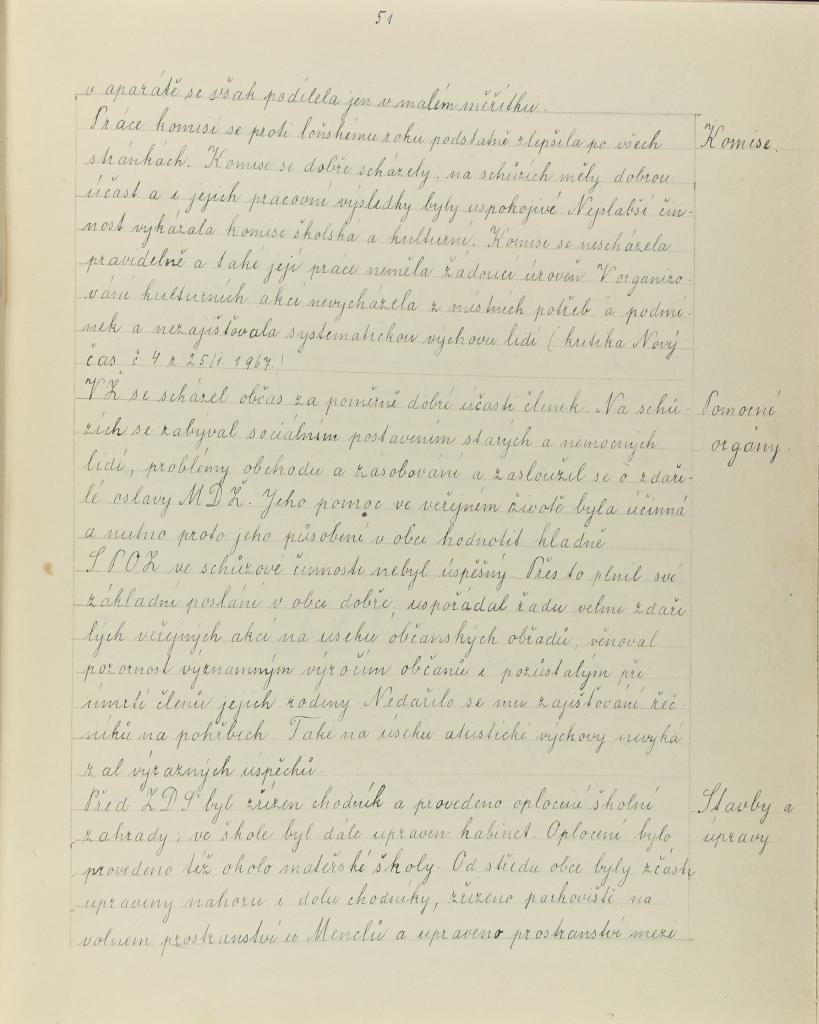 51
v aparátě se však podílela jen v malém měřítku.
Práce komisí se proti loňskému roku podstatně zlepšila po všech
Komise.
stránkách. Komise se dobře scházely, na schůzích měly dobrou
účast a i jejich pracovní výsledky byly uspokojivé. Nejslabší čin-
nost vykázala komise školská a kulturní. Komise se nescházela
pravidelně a také její práce neměla žádoucí úroveň. V organizo-
vání kulturních akcí nevycházela z místních potřeb a podmí-
nek a nezajišťovala systematickou výchovu lidí (kritika Nový
čas č 4 z 25/1 1967.)
VŽ se scházel občas za poměrně dobré účasti členek. Na schů-
Pomocné
zích se zabýval sociálním postavením starých a nemocných
orgány.
lidí, problémy obchodu a zásobování a zasloužil se o zdaři-
lé oslavy MDŽ. Jeho pomoc ve veřejném životě byla účinná
a nutno proto jeho působení v obci hodnotit kladně
SPOZ ve schůzové činnosti nebyl úspěšný. Přes to plnil své
základní poslání v obci dobře, uspořádal řadu velmi zdaři-
lých veřejných akcí na úseku občanských obřadů, věnoval
pozornost významným výročím občanů i pozůstalým při
úmrtí členů jejich rodiny. Nedařilo se mu zajišťování řeč-
níků na pohřbech. Také na úseku ateistické výchovy nevyká
zal výrazných úspěchů.
Před ZDŠ byl zřízen chodník a provedeno oplocení školní
Stavby a
zahrady; ve škole byl dále upraven kabinet. Oplocení bylo
úpravy.
provedeno též okolo mateřské školy. Od středu obce byly zčásti
upraveny nahoru i dolu chodníky, zřízeno parkoviště na
volném prostranství u Menclů a upraveno prostranství mezi